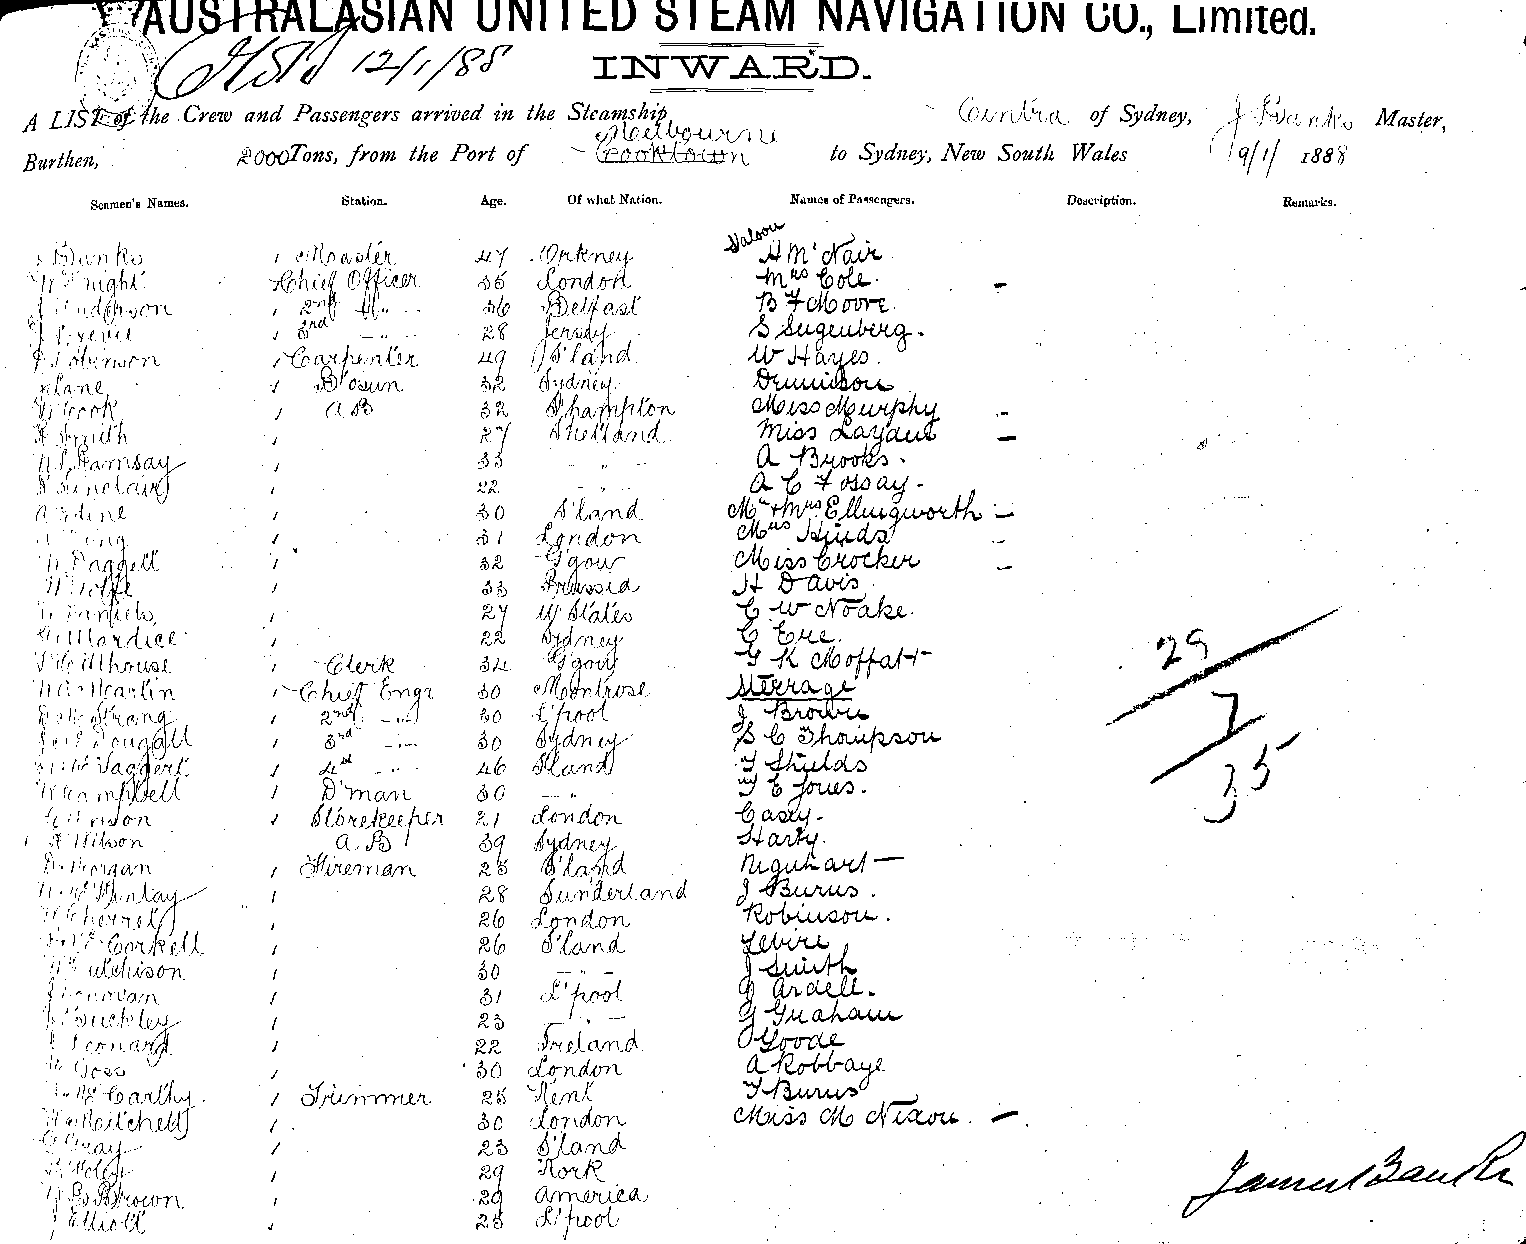 AUSTRALASIAN UNITED STEAM NAVIGATION CO., Limited.
12/1/88 INWARD.
A LIST of the Crew and Passengers arrived in the Steamship Centra of Sydney, J Banks Master,
Melbourne
Burthen, 2000 Tons, from the Port of Cooktown to Sydney, New South Wales 9/1/ 1888
Seamen's Names. Station. Age. Of what Nation. Names of Passengers. Description. Remarks.
Saloon
J Banks Master 47 Orkney H McNair
W Knight Chief Officer 35 London Mrs Cole
J Anderson 2nd " 36 Belfast B F Moore
3rd " 28 Jersey S Sugenberg
Robinson Carpenter 49 S'land W Hayes
Lane Bo'sun 32 Sydney Dennison
W Cook A B 32 S'hampton Miss Murphy
Smith 27 Shetland Miss
W Ramsay 33 " A Brooks
Sinclair 22 " A C Fossay
30 S'land Mr & Mrs Ellingworth
31 London Mrs Hinds
W Daggett 32 G'gow Miss Crocker
W Wolfe 33 Prussia H Davis
Daniels 27 U States C W Noake
22 Sydney C Eve
Clerk 34 G'gow G K Moffatt
29
W Martin Chief Engr 30 Montrose Sterrage
Strang 2nd " 30 L'pool J Brown
7
3rd " 30 Sydney S C Thompson
4th " 46 S'land T Shields
35
W Campbell D'man 30 " T E Jones
Storekeeper 21 London Casey
A Wilson A.B 39 Sydney Harty
D Morgan Fireman 25 S'land Urquhart
McKinlay 28 Sunderland J Burns
26 London Robinson
McCorkell 26 S'land
Hutchison 30 " J Smith
J Donovan 31 L'pool G Ardell
Buckley 23 " G Graham
Leonard 22 Ireland Goode
Goss 30 London A Robbaye
McCarthy Trimmer 25 Kent T Burns
Mitchell 30 London Miss M Nixon
Gray 23 S'land
29 York
Brown 29 America
James Banks
J Elliott 25 L'pool